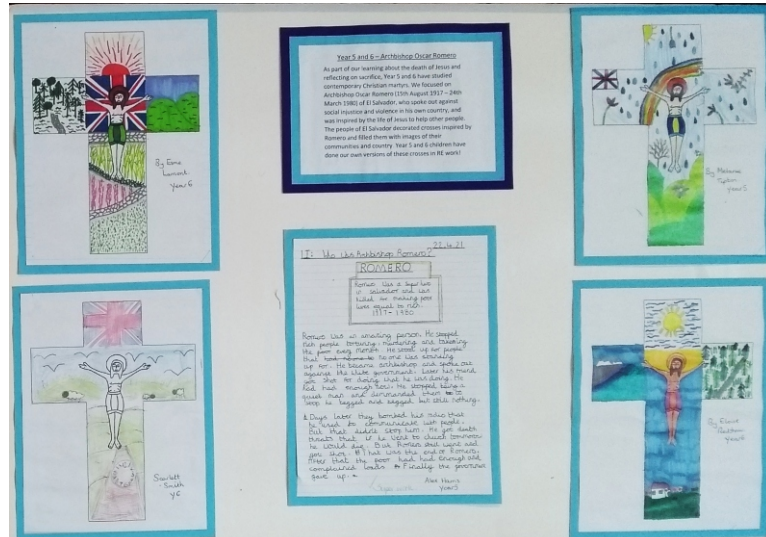 Year 5 and 6 – Archbishop Oscar Romero
As part of our learning about the death of Jesus and
reflecting on sacrifice, Year 5 and 6 have studied
contemporary Christian martyrs. We focused on
Archbishop Oscar Romero (15th August 1917 – 24th
March 1980) of El Salvador, who spoke out against
social injustice and violence in his own country, and
was inspired by the life of Jesus to help other people.
The people of El Salvador decorated crosses inspired by
Romero and filled them with images of their
communities and country. Year 5 and 6 children have
done our own versions of these crosses in RE work!
By Esme
Year 6
By
Year 5
Who Was Archbishop Romero?
ROMERO
Romero was a
in Salvador and was
killed for making poor
lives equal to rich.
1917 - 1980
Romero was an amazing person. He stopped
rich people torturing, murdering and
the poor every month. He stood up for people
that no one was standing
up for. He became archbishop and spoke out
against the government. Later his friend
got shot for doing what he was doing. He
had had enough. He stopped being a
quiet man and demanded them to
stop he begged and begged but still nothing.
Days later they bombed his radio that
he used to communicate with people.
But that didn't stop him. He got death
threats that if he went to church tomorrow
he would die. But Romero still went and
got shot. That was the end of Romero.
After that the poor had had enough and
complained loads. Finally the government
gave up.
Alex
Year 5
Scarlett
Smith
Y6
By
Year 6